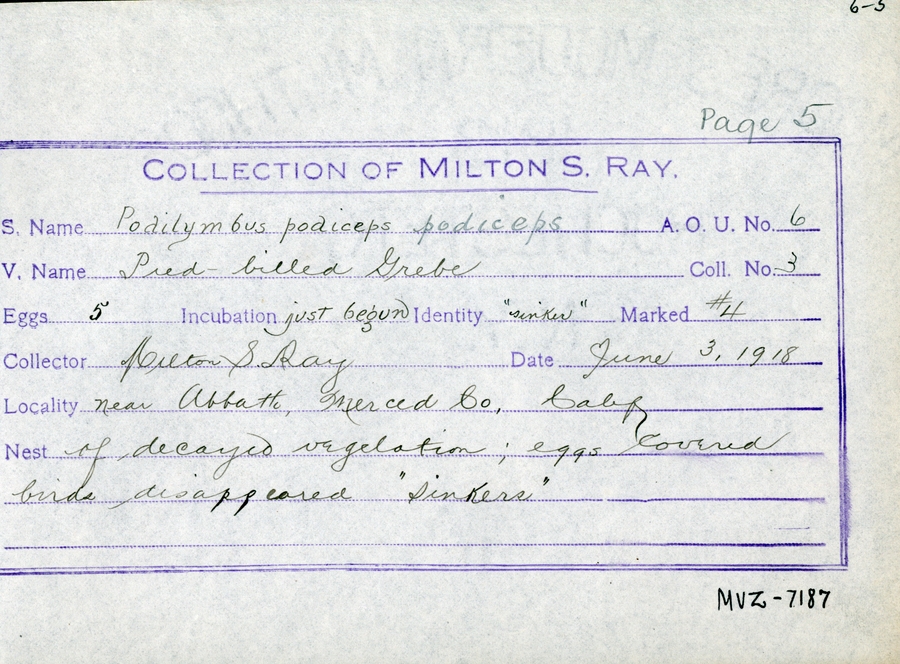 6-5
Page 5
COLLECTION OF MILTON S. RAY.
S. Name Podilymbus podiceps podiceps A. O. U. No. 6
V. Name Pied-billed Grebe Coll. No. 3
Eggs 5 Incubation just begun Identity "sinker" Marked #4
Collector Milton S Ray Date June 3, 1918
Locality near Abbath, Merced Co, Calif
Nest of decayed vegelation; eggs covered
birds disappeared "sinkers"
MVZ-7187